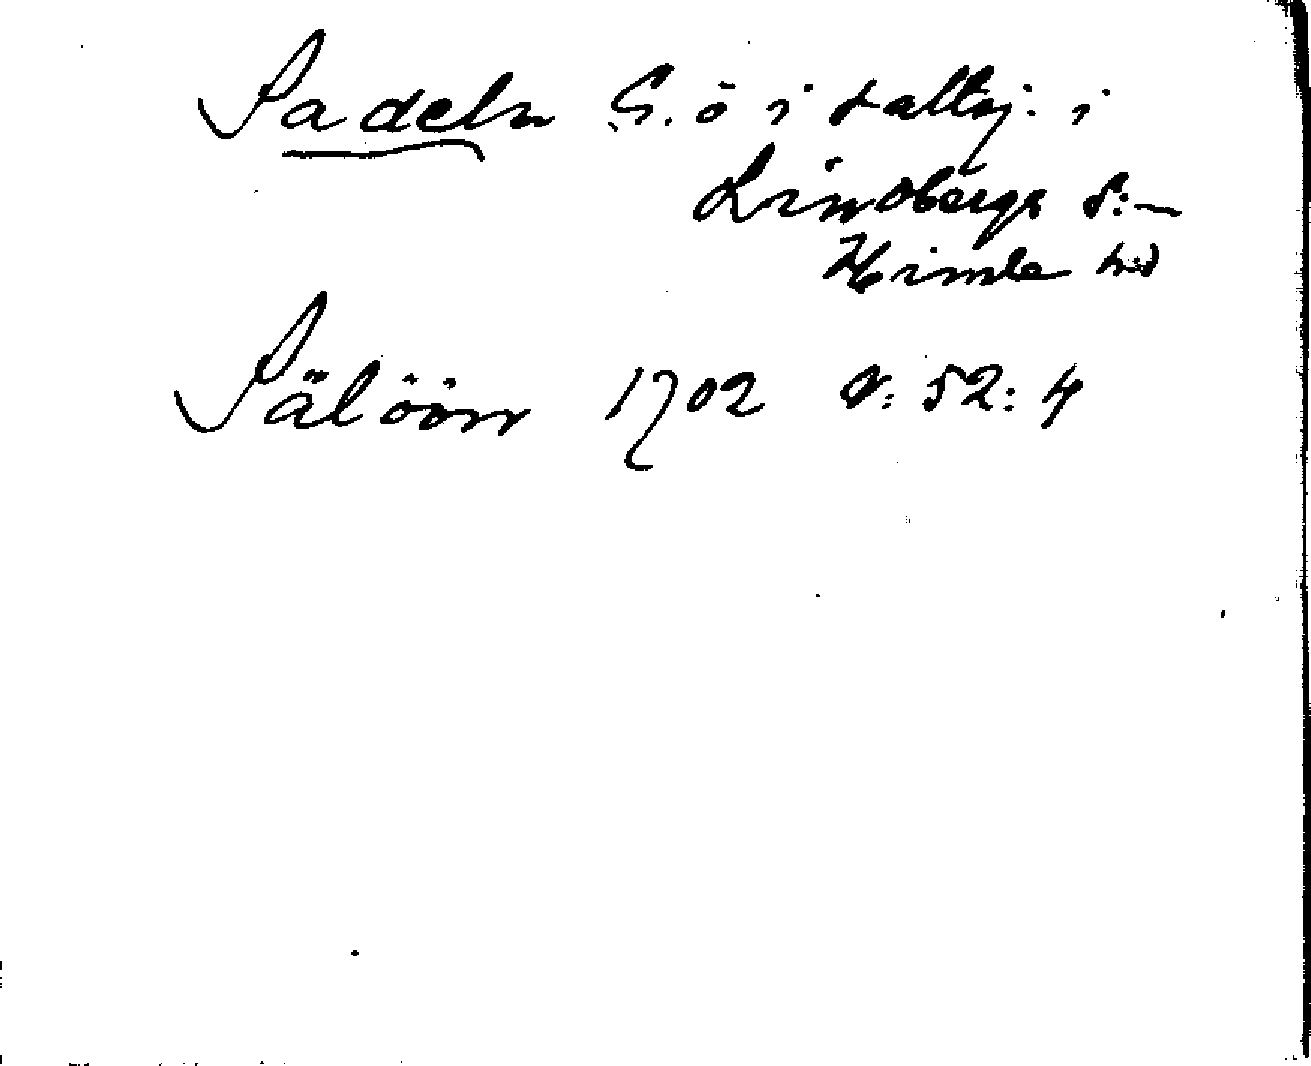 Sadeln S. ö i saltsj. i
Lindbergs s:n
Himle hd
Sälöön 1702 V: 52: 4